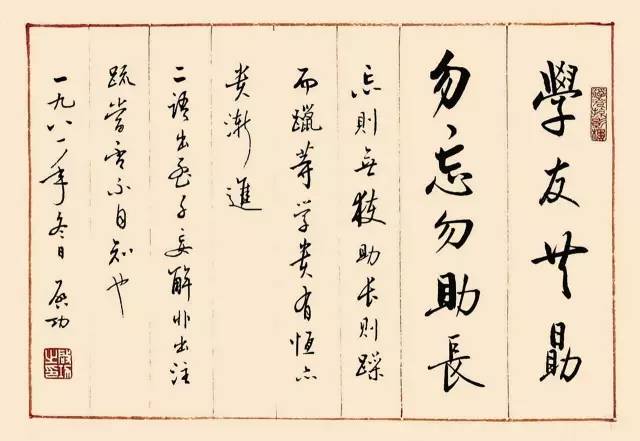 學友共勖
勿忘勿助長
忘則無獲助长則躁
而躐等学貴有恒亦
貴漸進
二語出孟子妄解非出注
疏當否不自知也
一九八一年冬日 启功
启功之印